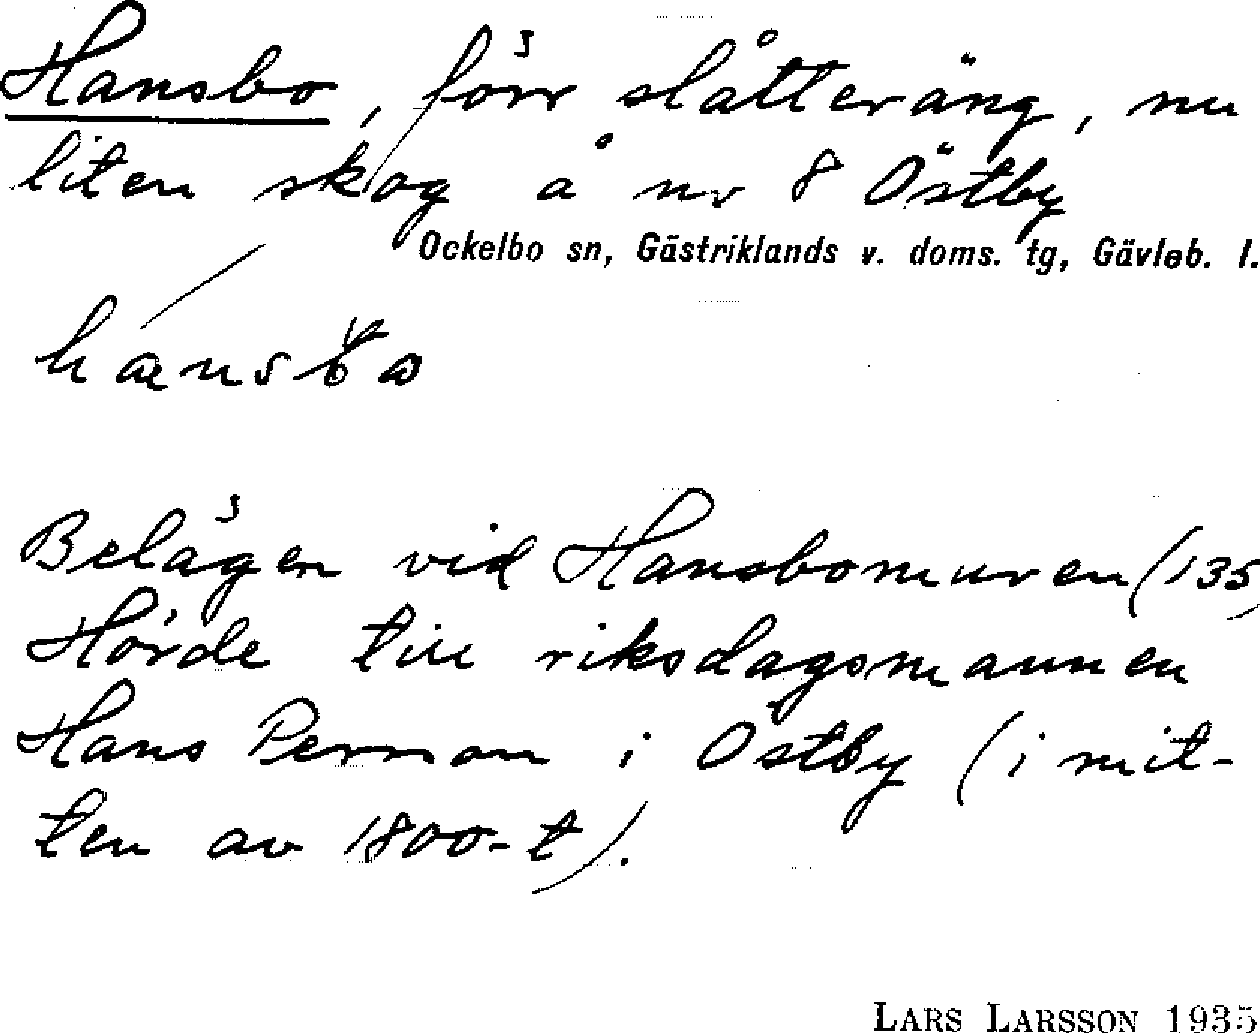 Hansbo, förr slåtteräng, nu
liten skog å nr 8 Östby
Ockelbo sn, Gästriklands v. doms. tg, Gävleb. l.
Belägen vid Hansbomuren (135)
Hörde till riksdagsmannen
Hans Persson i Östby (i mit-
ten av 1800-t).
LARS LARSSON 1935